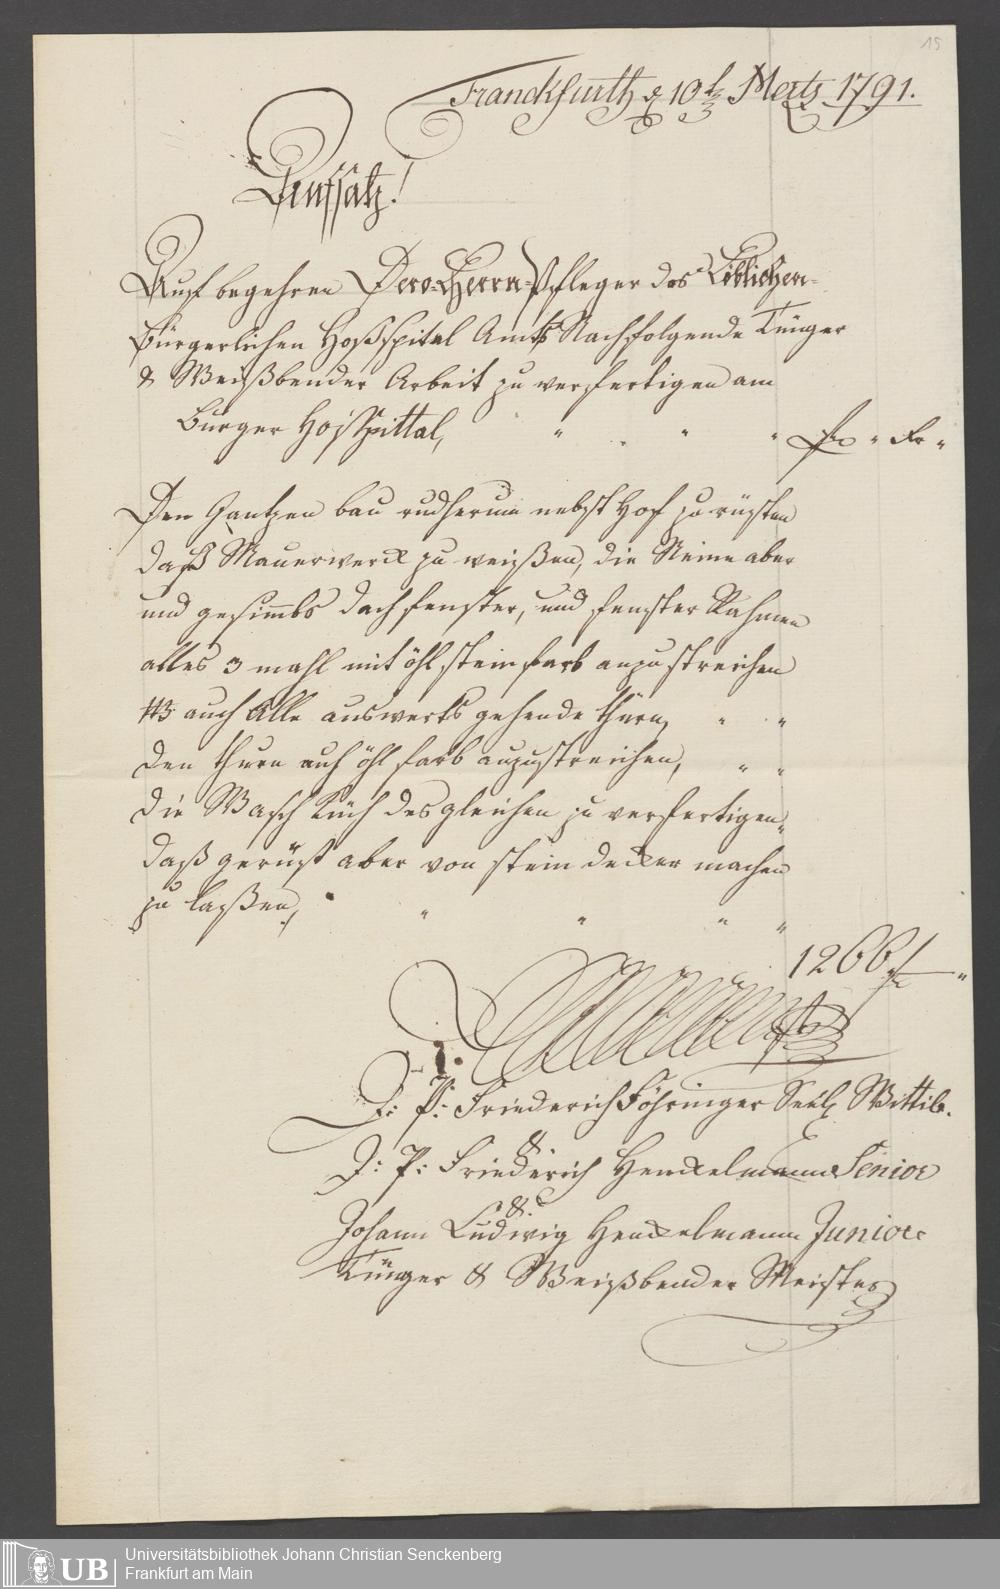 15
Franckfurth d 10t Mertz 1791.
Auf begehren Dero Herrn Pfleger des Löblichen
Bürgerlichen Hoßspital Amts Nachfolgende Tünger
& Weißbender Arbeit zu verfertigen am
Burger Hosspittal,
Den Gantzen bau rudherum nebst Hof zu rüsten
daß Mauerwerck zu weißen, die Steine aber
und gesimbs dachfenster, und fenster Rahmen
alles 3 mahl mit öhl steinfarb anzustreichen
auch Alle auswerts gehende thürn,
den thurn auf öhl farb anzustreichen,
die Wasch Küch desgleichen zu verfertigen
daß gerüst aber von stein decker machen
zu laßen,
1266 f
J: P: Friederich Föhringer Seel. Wittib.
&
J: P: Friederich Henckelmann Senior
&.
Johann Ludwig Henckelmann Junior
Tünger & Weißbender Meister
UB
Universitätsbibliothek Johann Christian Senckenberg
Frankfurt am Main